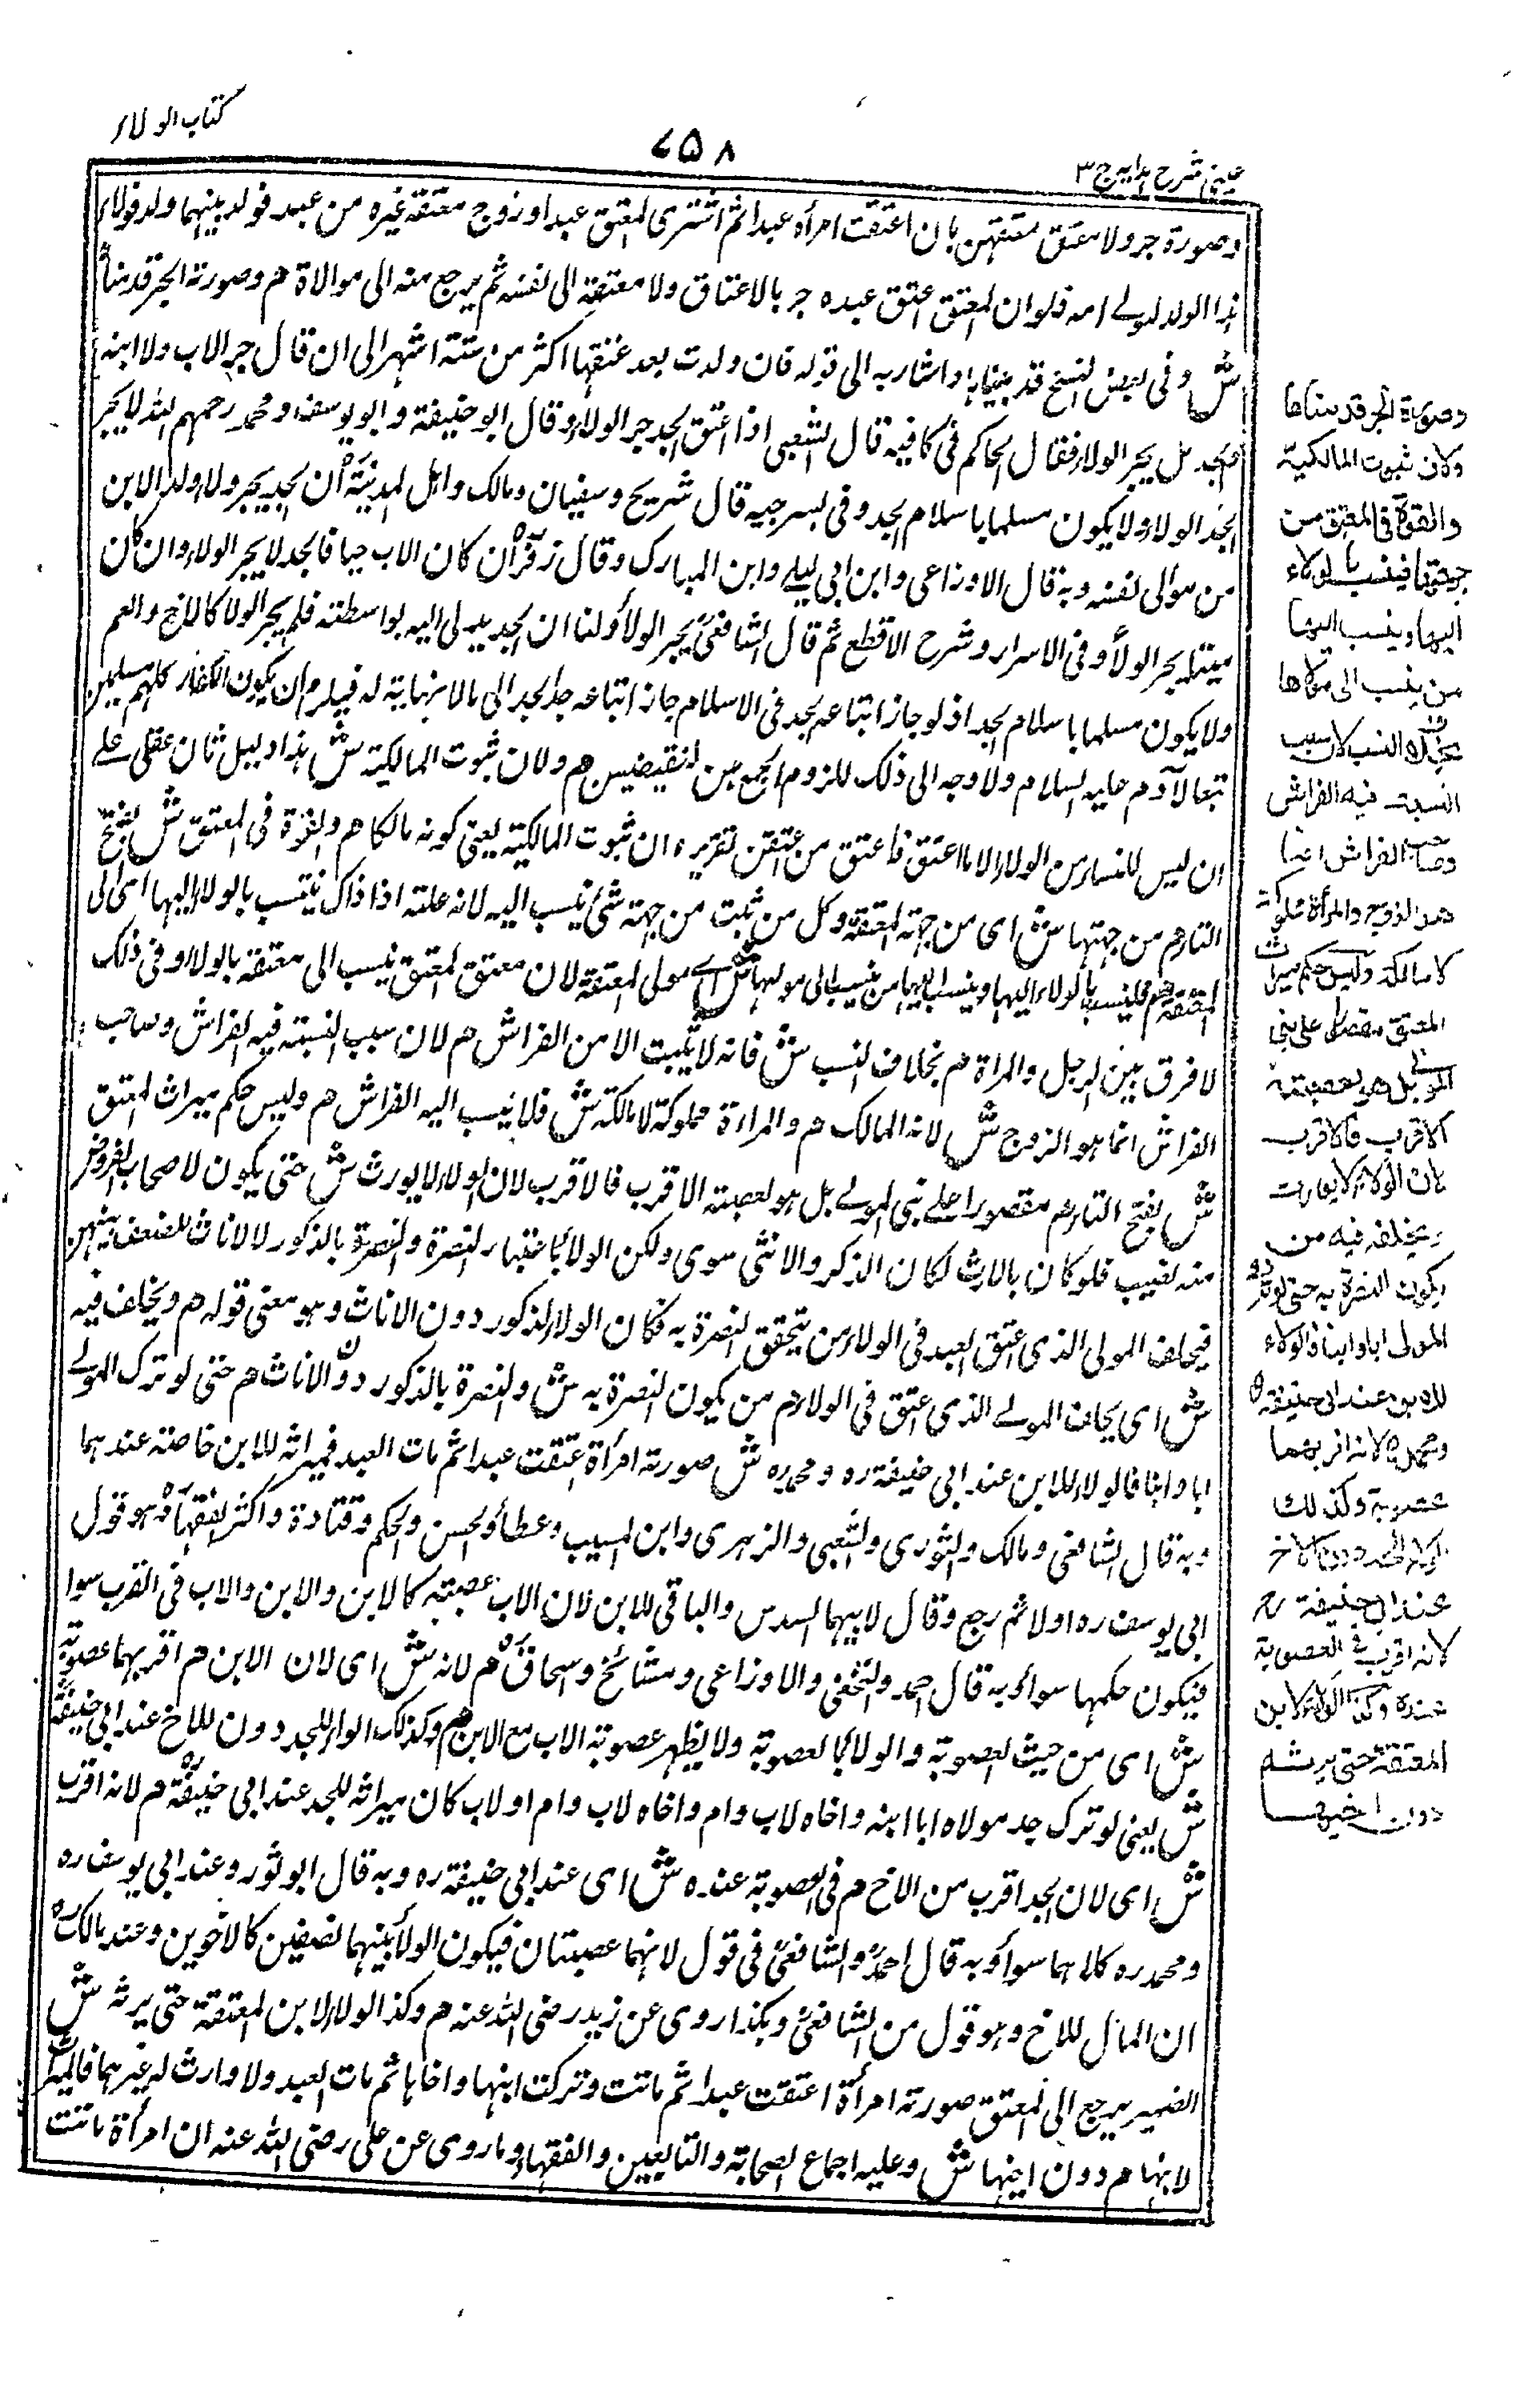 كتاب الولاء
٧٥٨
عينى شرح هدايه ج ٣
وصورة جر ولا معتق معتقهن بان اعتقت امرأه عبدا ثم اشترى المعتق عبدا وزوج معتقة غيره من عبد فولد بينهما ولد فولاء
هذا الولد لمولے امه فلو ان المعتق اعتق عبده جر بالاعتاق ولا معتقه الى نفسه ثم يرجع منه الى موالاة هم وصورته الجر قدمنا
ش وفى بعض النسخ قد بيناها واشار به الى قوله فان ولدت بعد عتقها اكثر من ستة اشهر الى ان قال جر الاب ولا ابنه
الجد هل يجر الولاء فقال الحاكم فى كافيه قال الشعبى اذا اعتق الجد جر الولاء وقال ابو حنيفة وابو يوسف ومحمد رحمهم الله لا يجر
الجد الولاء ولا يكون مسلما باسلام الجد وفى قال شريح وسفيان ومالك واهل المدينة ان الجد يجر ولاء ولد الابن
من موالى نفسه وبه قال الاوزاعى وابن ابى ليلے وابن المبارك وقال زفر ان كان الاب حيا فالجد لا يجر الولاء وان كان
ميتا يجر الولاء وفى الاسرار وشرح الاقطع ثم قال الشافعى يجر الولاء ولنا ان الجد يدلى اليه بواسطته فلم يجر الولا كالاخ والعم
ولا يكون مسلما باسلام الجد اذ لو جاز اتباعه الجد فى الاسلام جاز اتباعه جد الجد الى مالا نهاية له فيلزم ان يكون الكفار كلهم مسلمين
تبعا لآدم عليه السلام ولا وجه الى ذلك للزوم الجمع بين النقيضين هم ولان ثبوت المالكية ش هذا دليل ثان عقلى على
ان ليس للنساء من الولاء الا ما اعتقن او اعتق من اعتقن تقريره ان ثبوت المالكية يعنى كونه مالكا هم والقوة فى المعتق ش بفتح
التاء هم من جهتها ش اى من جهة المعتقة وكل من ثبت من جهة شئ ينسب اليه لانه علته اذا ذاك ينتسب بالولاء اليها اى الى
المعتقة هم فلينسب بالولاء اليها وينسب اليها من ينسب الى مولها ش اے مولى المعتقة لان معتق المعتق ينسب الى معتقه بالولاء وفى ذلك
لا فرق بين الرجل والمراة هم بخلاف النسب ش فانه لا يثبت الا من الفراش هم لان سبب النسبة فيه الفراش وصاحب
الفراش انما هو الزوج ش لانه المالك هم والمراءة مملوكة لا مالكة ش فلا ينسب اليه الفراش هم وليس حكم ميراث المعتق
ش بفتح التاء هم مقصورا على بنى المولے بل هو لعصبته الاقرب فالاقرب لان الولاء لا يورث ش حتى يكون لاصحاب الفروض
منه نصيب فلو كان بالارث لكان الذكر والانثى سوى ولكن الولاء باعتبار النصرة والنصرة بالذكور لا لاناث لضعف بنيتهن
فيخلف المولى الذى اعتق العبد فى الولاء من يتحقق النصرة به فكان الولاء للذكور دون الاناث وهو معنى قوله هم ويخلف فيه
ش اى يخلف المولے الذى اعتق فى الولاء هم من يكون النصرة به ش والنصرة بالذكور دون الاناث هم حتى لو ترك المولے
ابا وابنا فالولاء للابن عند ابى حنيفة ره ومحمد ره ش صورته امرأة اعتقت عبدا ثم مات العبد فميراثه للابن خاصته عندهما
وبه قال الشافعى ومالك والثورى والشعبى والزهرى وابن المسيب وعطاء والحسن والحكم وقتادة واكثر الفقهاء وهو قول
ابى يوسف ره اولا ثم رجع وقال لابيهما السدس والباقى للابن لان الاب عصبته كالابن والابن والاب فى القرب سوا
فيكون حكمهما سواء وبه قال احمد والنخعى والاوزاعى ومشائخ واسحاق هم لانه ش اى لان الابن هم اقربهما عصوبة
ش اى من حيث العصوبة والولاء بالعصوبة ولا يظهر عصوبة الاب مع الابن هم وكذلك الولاء للجد دون للاخ عند ابى حنيفة
ش يعنى لو ترك جد مولاه ابا ابنه واخاه لاب وام واخاه لاب وام او لاب كان ميراثه للجد عند ابى حنيفة هم لانه اقرب
ش اى لان الجد اقرب من الاخ هم فى العصوبة عنده ش اى عند ابى حنيفة ره وبه قال ابو ثور وعند ابى يوسف ره
ومحمد ره كلاهما سواء وبه قال احمد والشافعى فى قول لانهما عصبتان فيكون الولاء بينهما نصفين كالاخوين وعند مالك ره
ان المال للاخ وهو قول من الشافعى وهكذا روى عن زيد رضى الله عنه هم وكذا الولاء لابن المعتقة حتى يرثه ش
الضمير يرجع الى المعتق صورته امرأة اعتقت عبدا ثم ماتت وتركت ابنها واخاها ثم مات العبد ولا وارث له غيرهما فالميراث
لابنها هم دون اخيها ش وعليه اجماع الصحابة والتابعين والفقهاء وما روى عن على رضى الله عنه ان امرأة ماتت
وصورة الجر قد بيناها
ولان ثبوت المالكية
والقوة فى المعتق من
جهتها فينسب بالولاء
اليها وينسب اليها
من ينسب الى مولاها
بخلاف النسب لان سبب
النسبة فيه الفراش
وصاحب الفراش انما
هو الزوج والمرأة مملوكة
لا مالكة وليس حكم ميراث
المعتق مقصورا على بنى
المولى بل هو لعصبته
الاقرب فالاقرب
لان الولاء لا يورث
ويخلفه فيه من
يكون النصرة به حتى لو ترك
المولى ابا وابنا فالولاء
للابن عند ابى حنيفة
ومحمد لانه اقربهما
عصوبة وكذلك
الولاء للجد دون الاخ
عند ابى حنيفة رح
لانه اقرب فى العصوبة
عنده وكذا الولاء لابن
المعتقة حتى يرثه
دون اخيها